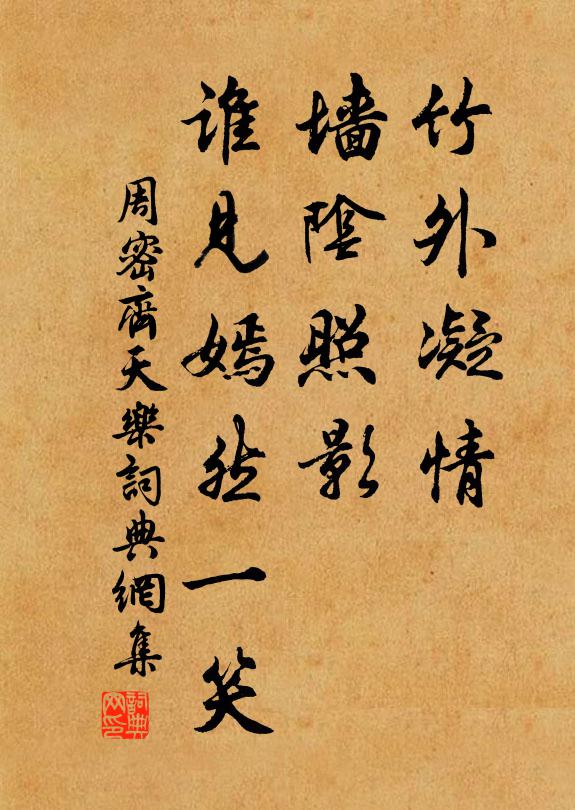 竹外凝情
墙陰照影
谁見嫣然一笑
周密齊天樂詞典網集
詞典网印